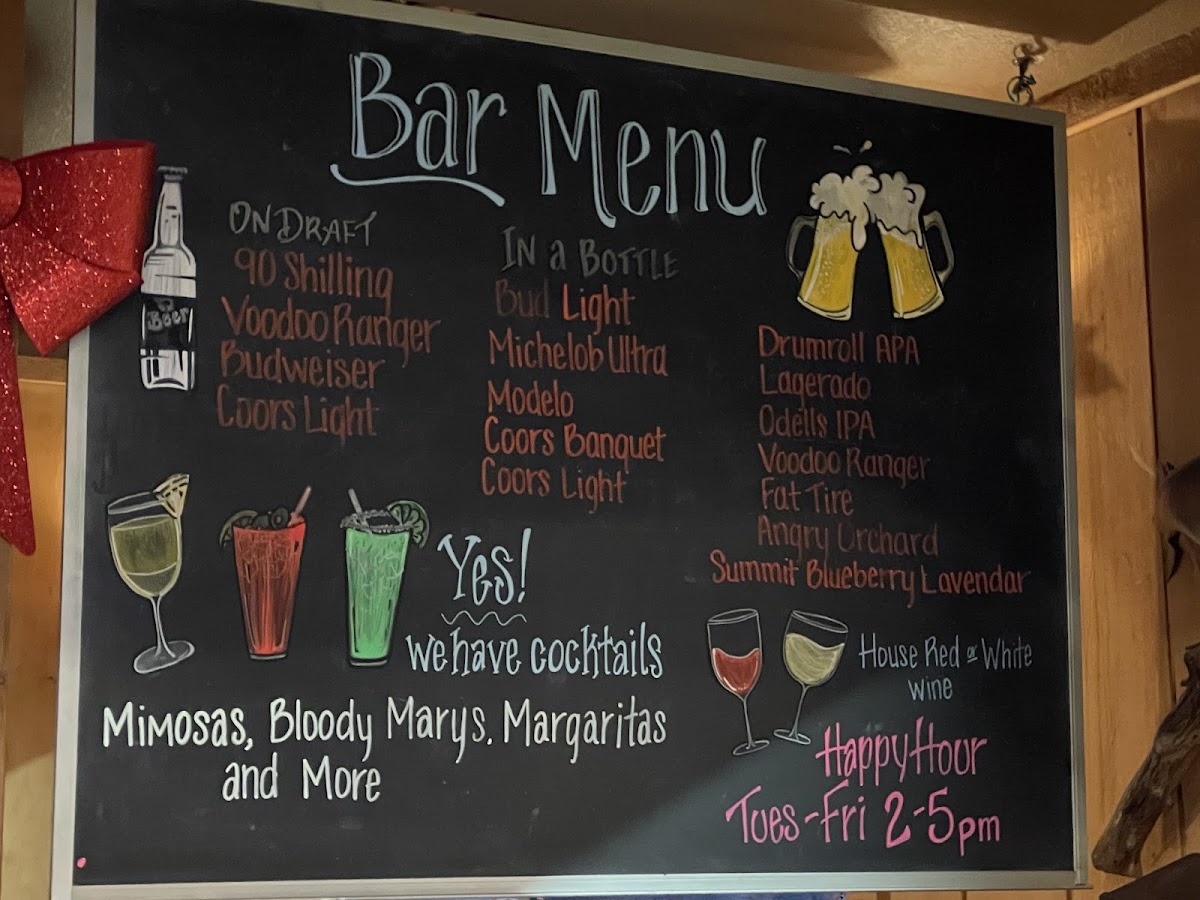 Bar Menu
ON DRAFT
90 Shilling
Voodoo Ranger
Budweiser
Coors Light
Beer
IN a BOTTLE
Bud Light
Michelob Ultra
Modelo
Coors Banquet
Coors Light
Drumroll APA
Lagerado
Odells IPA
Voodoo Ranger
Fat Tire
Angry Orchard
Summit Blueberry Lavendar
Yes!
we have cocktails
Mimosas, Bloody Marys, Margaritas
and More
House Red or White
wine
Happy Hour
Tues-Fri 2-5pm